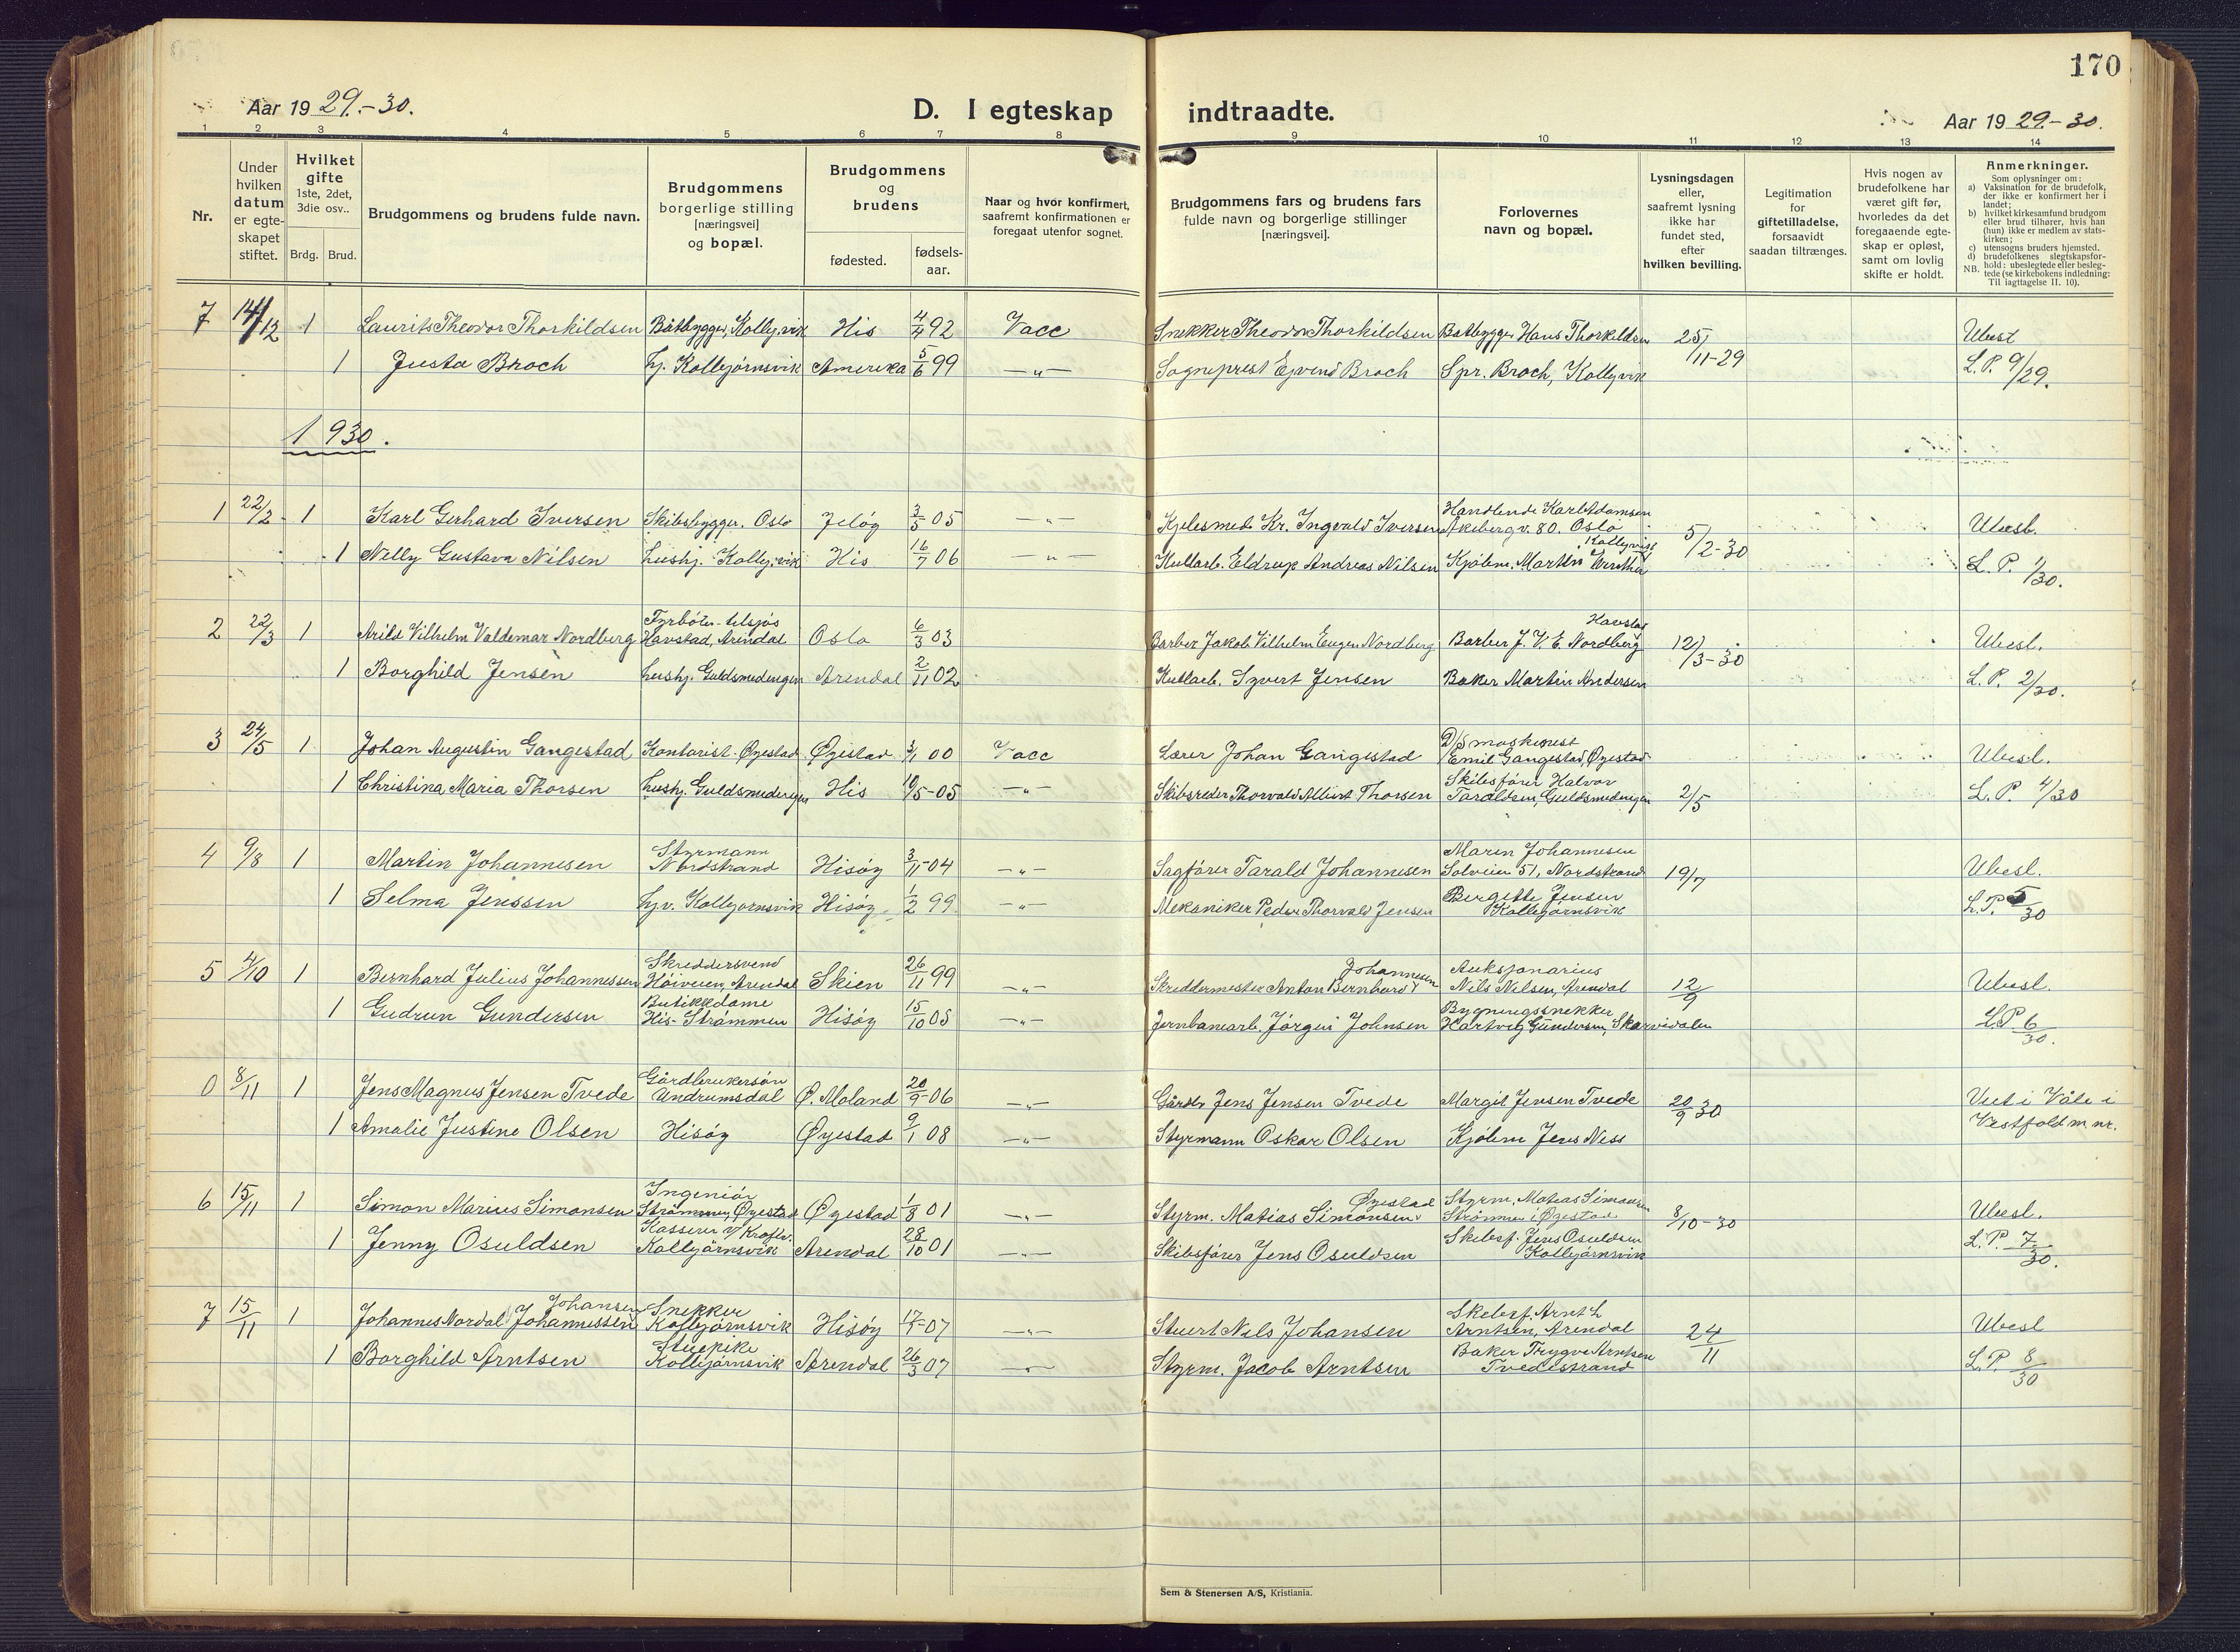 170
Aar 19 29.-30.
D. I egteskap indtraadte.
Aar 19 29.-30.
1 2 3 4 5 6 7 8 9 10 11 12 13 14
Nr.
Under hvilken datum er egte-skapet stiftet.
Hvilket gifte 1ste, 2det, 3die osv..
Brdg. Brud.
Brudgommens og brudens fulde navn.
Brudgommens borgerlige stilling [næringsvei] og bopæl.
Brudgommens og brudens
fødested. fødsels-aar.
Naar og hvor konfirmert, saafremt konfirmationen er foregaat utenfor sognet.
Brudgommens fars og brudens fars fulde navn og borgerlige stillinger [næringsvei].
Forlovernes navn og bopæl.
Lysningsdagen eller, saafremt lysning ikke har fundet sted, efter hvilken bevilling.
Legitimation for giftetilladelse, forsaavidt saadan tiltrænges.
Hvis nogen av brudefolkene har været gift før, hvorledes da det foregaaende egte-skap er opløst, samt om lovlig skifte er holdt.
Anmerkninger.
Som oplysninger om:
a) Vaksination for de brudefolk, der ikke er konfirmert her i landet;
b) hvilket kirkesamfund brudgom eller brud tilhører, hvis han (hun) ikke er medlem av stats-kirken;
c) utensogns bruders hjemsted.
d) brudefolkenes slegtskapsfor-hold: ubeslegtede eller besleg-tede (se kirkebokens indledning:
NB. Til iagttagelse II. 10).
7 14/12 1 Laurits Theodor Thorkildsen Båtbygger, Kolbj.vik His 4/4 92 Vacc Snekker Theodor Thorkildsen Båtbygger Hans Thorkildsen 25/11-29 Ubesl
1 Justa Broch hj. Kolbjørnsvik Amerika 5/6 99 —"— Sogneprest Ejvind Broch Spr. Broch, Kolbj.vik L.P. 9/29.
1930.
Handlende Karl Adamsen
1 22/2 1 Karl Gerhard Iversen Skibsbygger, Oslo Jeløy 3/5 05 —"— Kjelesmed Kr. Ingvald Iversen Akeberg v. 80. Oslo 5/2-30 Ubesl.
Kolbj.vik
1 Nelly Gustava Nilsen hushj. Kolbj.vik His 16/7 06 —"— Kullarb. Eldrup Andreas Nilsen Kjøbm. Martin L.P. 1/30.
Fyrbøter tilsjøs Havstad
2 22/3 1 Arild Vilhelm Valdemar Nordberg Havstad, Arendal Oslo 6/3 03 Barber Jakob Vilhelm Eugen Nordberg Barber J. V. E. Nordberg 12/3-30 Ubesl.
1 Borghild Jensen hushj. Guldsmedengen Arendal 2/11 02 Kullarb. Syvert Jensen Baker Martin Andersen L.P. 2/30.
D/S maskinest
3 24/5 1 Johan Augustin Gangestad Kontorist Øyestad Øyestad 3/1 00 Vacc Lærer Johan Gangestad Emil Gangestad, Øyestad Ubesl.
Skibsfører Halvor
1 Christina Maria Thorsen hushj. Guldsmedengen His 10/5-05 —"— Skibsreder Thorvald Albert Thorsen Taraldsen, Guldsmedengen 2/5 L.P. 4/30
Styrmann Maren Johannesen
4 9/8 1 Martin Johannesen Nordstrand Hisøy 3/11-04 —"— Sagfører Tarald Johannesen Solveien 51, Nordstrand 19/7 Ubesl.
Bergitte Jensen
1 Selma Jenssen hjv. Kolbjørnsvik Hisøy 1/2 99 —"— Mekaniker Peder Thorvald Jensen Kolbjørnsvik L.P. 5/30
Skreddersvend Johannessen Auksjonarius
5 4/10 1 Bernhard Julius Johannessen Høiveien, Arendal Skien 26/11 99 —"— Skreddermester Anton Bernhard Nils Nilsen, Arendal 12/9 Ubesl.
Butikkdame Bygningssnekker
1 Gudrun Gundersen His-Strømmen Hisøy 15/10 05 —"— Jernbanearb. Jørgen Johnsen Hartvig Gundersen, Skarvedalen L.P. 6/30.
Gårdbrukersøn
0 8/11 1 Jens Magnus Jensen Tvede Undrumsdal Ø. Moland 20/9-06 —"— Gårdbr Jens Jensen Tvede Margit Jensen Tvede 20/9 30 Viet i Våle i
1 Amalie Justine Olsen Hisøy Øyestad 9/1 08 —"— Styrmann Oskar Olsen Kjøbm Jens Ness Vestfold m nr.
Ingeniør Øyestad Styrm. Matias Simonsen
6 15/11 1 Simon Marius Simonsen Strømmen, Øyestad Øyestad 1/8 01 —"— Styrm. Matias Simonsen. Strømmen i Øyestad 8/10-30 Ubesl.
Kasserer v/ Kraftv. Skibsf. Jens Osuldsen
1 Jenny Osuldsen Kolbjørnsvik Arendal 28/10 01 —"— Skibsfører Jens Osuldsen Kolbjørnsvik L.P. 7/30.
Johansen Snekker Skibsf. Arnt L
7 15/11 1 Johannes Nordal Johannessen Kolbjørnsvik Hisøy 17/7-07 —"— Stuert Nils Johansen Arntsen, Arendal 24/11 Ubesl
Stuepike Baker Trygve Arntsen
1 Borghild Arntsen Kolbjørnsvik Arendal 26/3 07 —"— Styrm. Jacob Arntsen Tvedestrand L.P. 8/30
Sem & Stenersen A/S, Kristiania.